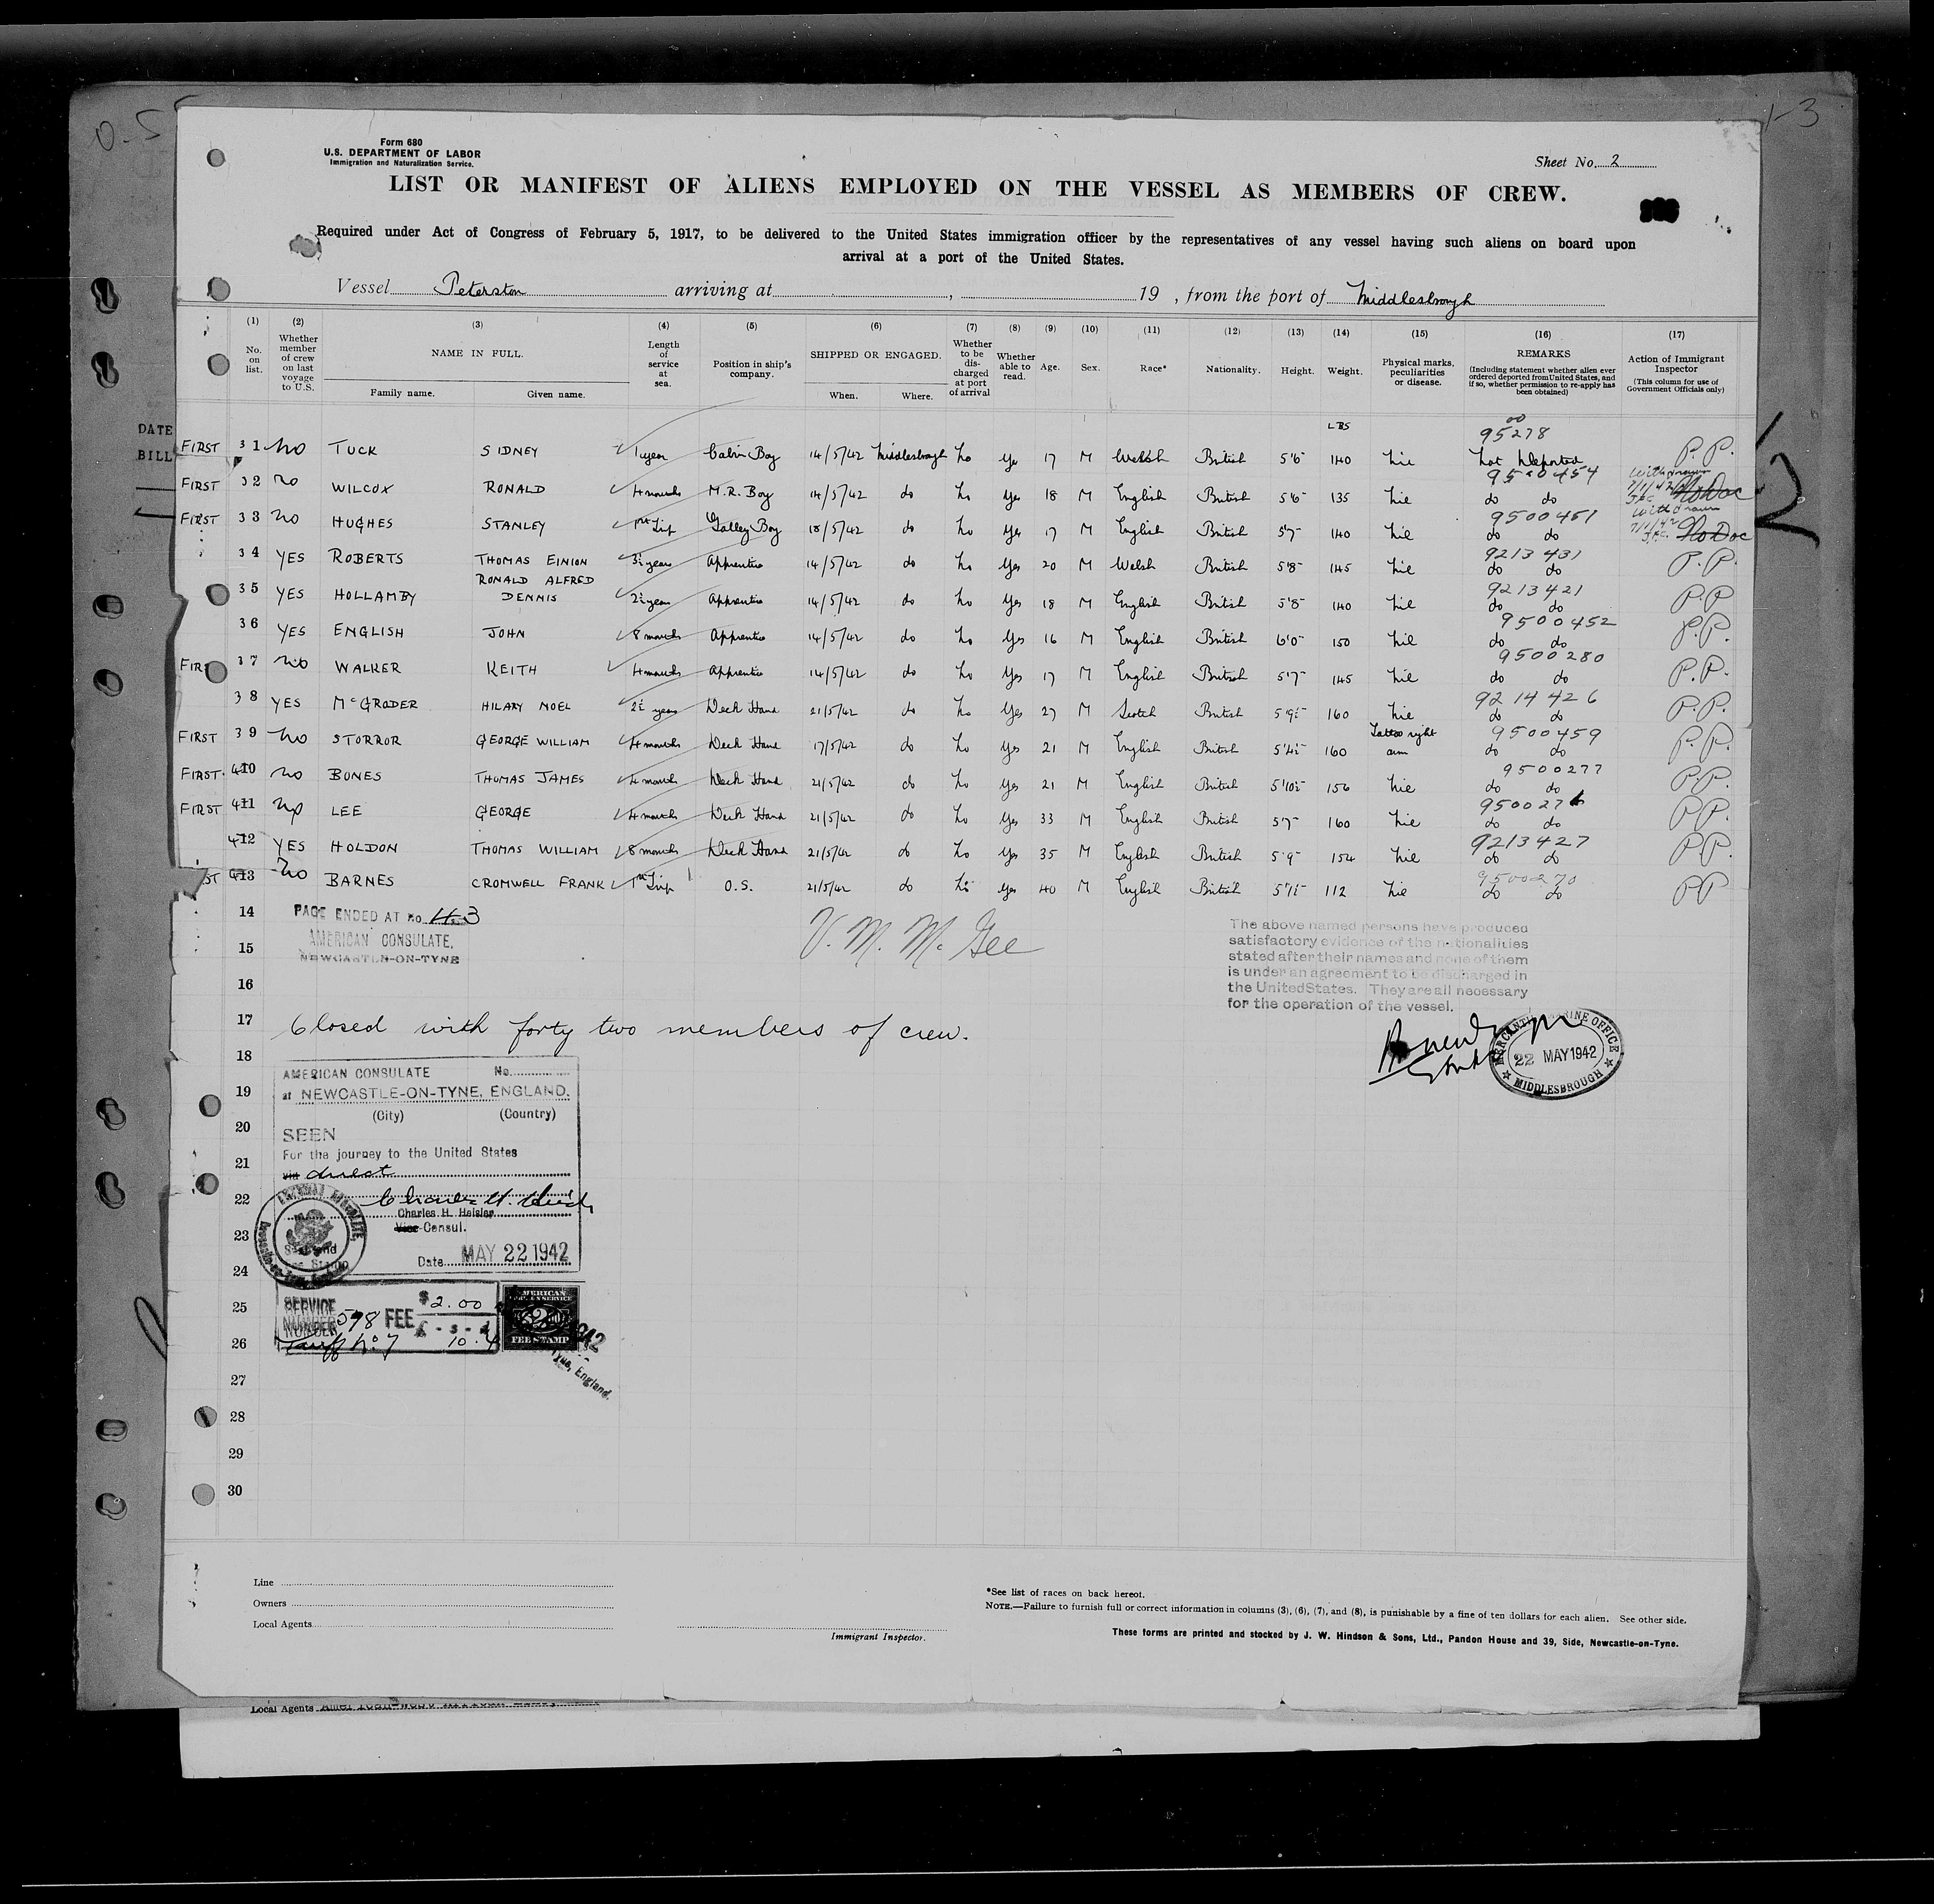 0-5
1-3
Form 680
U.S. DEPARTMENT OF LABOR
Immigration and Naturalization Service.
Sheet No. 2
LIST OR MANIFEST OF ALIENS EMPLOYED ON THE VESSEL AS MEMBERS OF CREW.
Required under Act of Congress of February 5, 1917, to be delivered to the United States immigration officer by the representatives of any vessel having such aliens on board upon
arrival at a port of the United States.
Vessel Peterston arriving at , 19 , from the port of Middlesbrough
(1) (2) (3) (4) (5) (6) (7) (8) (9) (10) (11) (12) (13) (14) (15) (16) (17)
No. on list. Whether member of crew on last voyage to U.S. NAME IN FULL. Family name. Given name. Length of service at sea. Position in ship's company. SHIPPED OR ENGAGED. When. Where. Whether to be discharged at port of arrival Whether able to read. Age. Sex. Race* Nationality. Height. Weight. Physical marks, peculiarities or disease. REMARKS (Including statement whether alien ever ordered deported from United States, and if so, whether permission to re-apply has been obtained) Action of Immigrant Inspector (This column for use of Government Officials only)
DATE
BILL
LBS
FIRST 31 No TUCK SIDNEY 1 year Cabin Boy 14/5/42 Middlesbrough No Yes 17 M Welsh British 5'6" 140 Nil 9500278 Not Deported P.P.
FIRST 32 No WILCOX RONALD 4 months M.R. Boy 14/5/42 do No Yes 18 M English British 5'6" 135 Nil 9500454 do do Withdrawn 7/1/42 No Doc
FIRST 33 No HUGHES STANLEY 1st Trip Galley Boy 18/5/42 do No Yes 17 M English British 5'7" 140 Nil 9500451 do do Withdrawn 7/1/42 No Doc
34 YES ROBERTS THOMAS EINION 3½ years Apprentice 14/5/42 do No Yes 20 M Welsh British 5'8" 145 Nil 9213431 do do P.P.
35 YES HOLLAMBY RONALD ALFRED DENNIS 2½ years Apprentice 14/5/42 do No Yes 18 M English British 5'8" 140 Nil 9213421 do do P.P
36 YES ENGLISH JOHN 8 months Apprentice 14/5/42 do No Yes 16 M English British 6'0" 150 Nil 9500452 do do P.P.
FIRST 37 No WALKER KEITH 4 months Apprentice 14/5/42 do No Yes 17 M English British 5'7" 145 Nil 9500280 do do P.P.
38 YES McGRODER HILARY NOEL 2½ years Deck Hand 21/5/42 do No Yes 27 M Scotch British 5'9½" 160 Nil 9214426 do do P.P.
FIRST 39 No STORROR GEORGE WILLIAM 4 months Deck Hand 17/5/42 do No Yes 21 M English British 5'4½" 160 Tattoo right arm 9500459 do do P.P.
FIRST 40 No BONES THOMAS JAMES 4 months Deck Hand 21/5/42 do No Yes 21 M English British 5'10½" 156 Nil 9500277 do do P.P.
FIRST 41 No LEE GEORGE 4 months Deck Hand 21/5/42 do No Yes 33 M English British 5'7" 160 Nil 9500276 do do P.P.
42 YES HOLDON THOMAS WILLIAM 8 months Deck Hand 21/5/42 do No Yes 35 M English British 5'9" 154 Nil 9213427 do do P.P.
43 No BARNES CROMWELL FRANK 1st Trip O.S. 21/5/42 do No Yes 40 M English British 5'7½" 112 Nil 9500270 do do PP
14 PAGE ENDED AT No. 43
V. M. McGee
AMERICAN CONSULATE,
NEWCASTLE-ON-TYNE
15
16
The above named persons have produced
satisfactory evidence of the nationalities
stated after their names and none of them
is under an agreement to be discharged in
the United States. They are all necessary
for the operation of the vessel.
17 Closed with forty two members of crew.
MERCANTILE MARINE OFFICE
22 MAY 1942
MIDDLESBROUGH
18
AMERICAN CONSULATE No.
19
at NEWCASTLE-ON-TYNE, ENGLAND.
(City) (Country)
20
SEEN
For the journey to the United States
21
via direct
22
Charles H. Heisler
Vice Consul.
23
Date MAY 22 1942
24
25
SERVICE NUMBER 598 FEE $2.00
Tariff No. 7
AMERICAN
FEE STAMP
26
Tyne, England.
27
28
29
30
Line
Owners
Local Agents
Immigrant Inspector.
*See list of races on back hereof.
NOTE.—Failure to furnish full or correct information in columns (3), (6), (7), and (8), is punishable by a fine of ten dollars for each alien. See other side.
These forms are printed and stocked by J. W. Hindson & Sons, Ltd., Pandon House and 39, Side, Newcastle-on-Tyne.
Local Agents